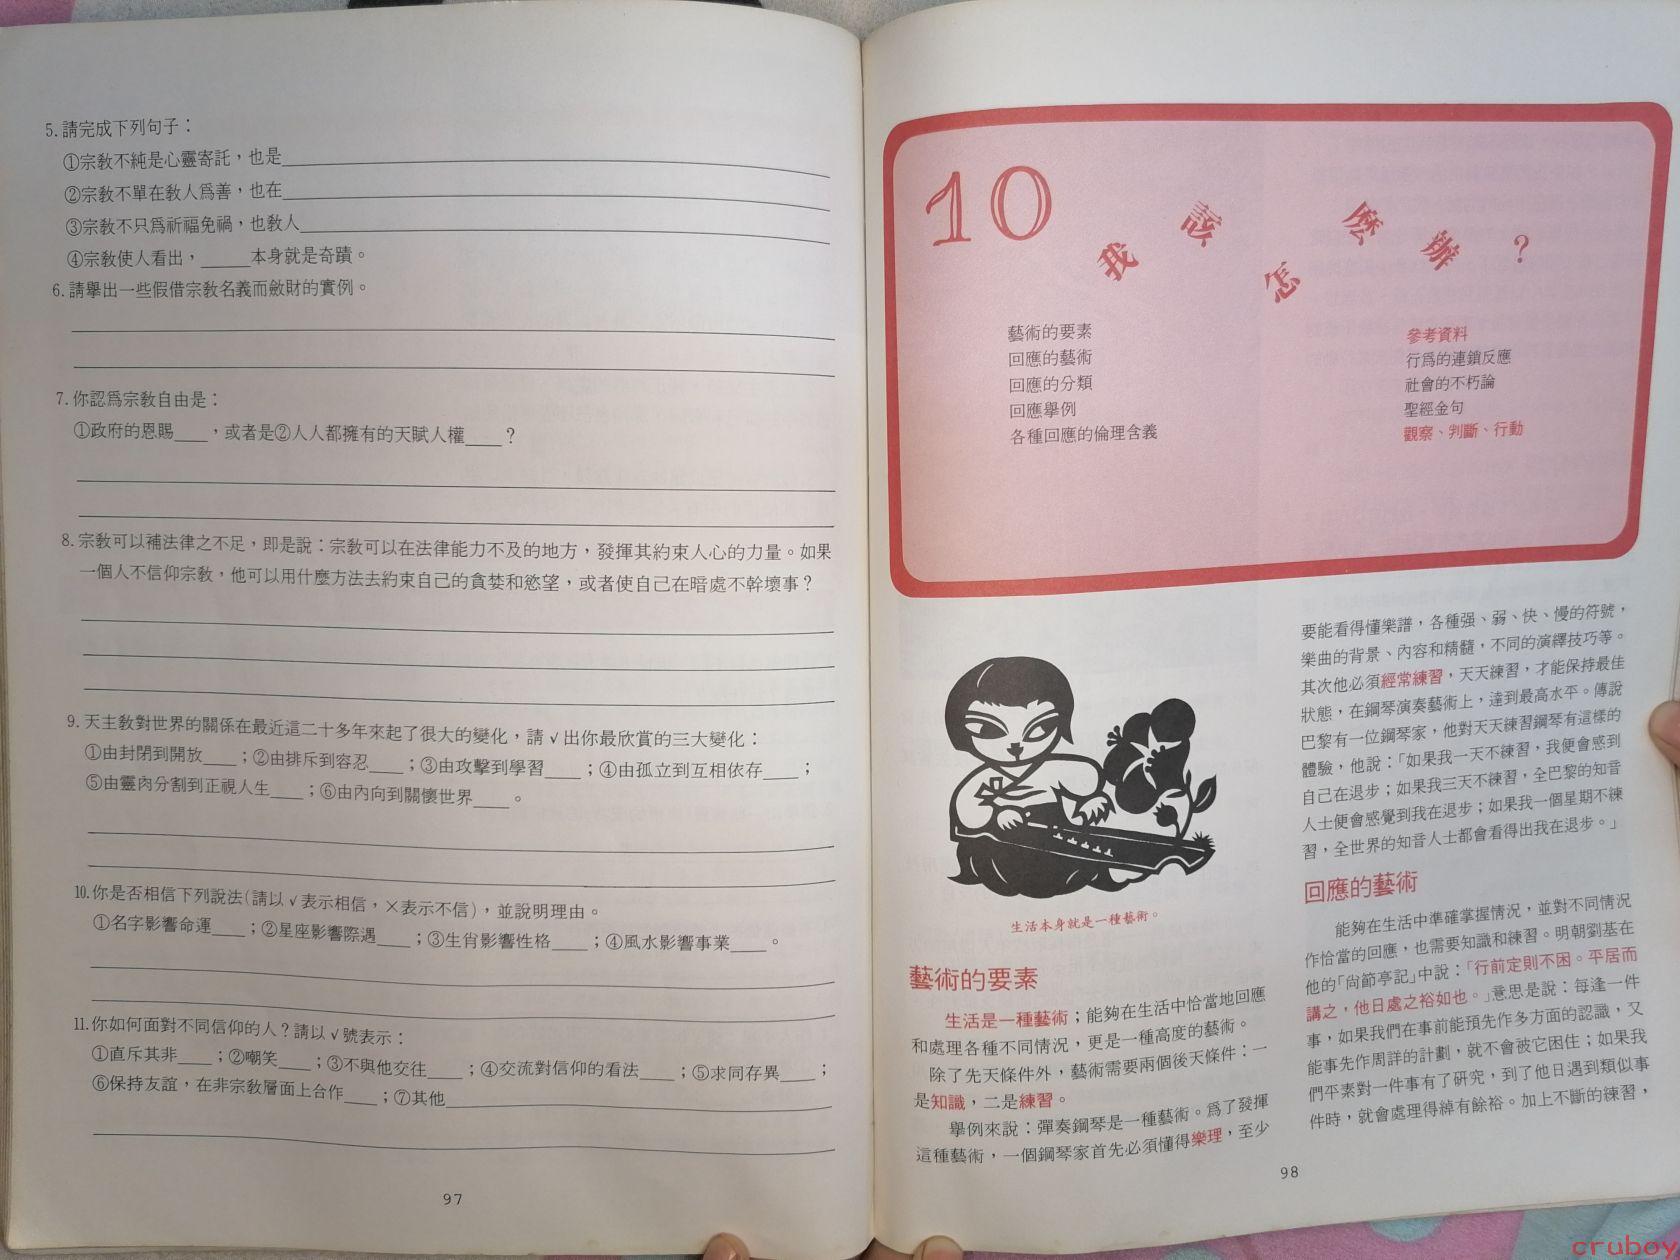 5.請完成下列句子：
①宗教不純是心靈寄託，也是
②宗教不單在教人爲善，也在
③宗教不只爲祈福免禍，也教人
④宗教使人看出，＿＿＿本身就是奇蹟。
6.請舉出一些假借宗教名義而斂財的實例。
7.你認爲宗教自由是：
①政府的恩賜＿＿，或者是②人人都擁有的天賦人權＿＿？
8.宗教可以補法律之不足，即是說：宗教可以在法律能力不及的地方，發揮其約束人心的力量。如果
一個人不信仰宗教，他可以用什麼方法去約束自己的貪婪和慾望，或者使自己在暗處不幹壞事？
9.天主教對世界的關係在最近這二十多年來起了很大的變化，請√出你最欣賞的三大變化：
①由封閉到開放＿＿；②由排斥到容忍＿＿；③由攻擊到學習＿＿；④由孤立到互相依存＿＿；
⑤由靈肉分割到正視人生＿＿；⑥由內向到關懷世界＿＿。
10.你是否相信下列說法(請以√表示相信，×表示不信)，並說明理由。
①名字影響命運＿＿；②星座影響際遇＿＿；③生肖影響性格＿＿；④風水影響事業＿＿。
11.你如何面對不同信仰的人？請以√號表示：
①直斥其非＿＿；②嘲笑＿＿；③不與他交往＿＿；④交流對信仰的看法＿＿；⑤求同存異＿＿；
⑥保持友誼，在非宗教層面上合作＿＿；⑦其他
97
10
我該怎麼辦？
藝術的要素
回應的藝術
回應的分類
回應舉例
各種回應的倫理含義
參考資料
行爲的連鎖反應
社會的不朽論
聖經金句
觀察、判斷、行動
生活本身就是一種藝術。
藝術的要素
生活是一種藝術；能夠在生活中恰當地回應
和處理各種不同情況，更是一種高度的藝術。
除了先天條件外，藝術需要兩個後天條件：一
是知識，二是練習。
舉例來說：彈奏鋼琴是一種藝術。爲了發揮
這種藝術，一個鋼琴家首先必須懂得樂理，至少
要能看得懂樂譜，各種强、弱、快、慢的符號，
樂曲的背景、內容和精髓，不同的演繹技巧等。
其次他必須經常練習，天天練習，才能保持最佳
狀態，在鋼琴演奏藝術上，達到最高水平。傳說
巴黎有一位鋼琴家，他對天天練習鋼琴有這樣的
體驗，他說：「如果我一天不練習，我便會感到
自己在退步；如果我三天不練習，全巴黎的知音
人士便會感覺到我在退步；如果我一個星期不練
習，全世界的知音人士都會看得出我在退步。」
回應的藝術
能夠在生活中準確掌握情況，並對不同情況
作恰當的回應，也需要知識和練習。明朝劉基在
他的「尙節亭記」中說：「行前定則不困。平居而
講之，他日處之裕如也。」意思是說：每逢一件
事，如果我們在事前能預先作多方面的認識，又
能事先作周詳的計劃，就不會被它困住；如果我
們平素對一件事有了研究，到了他日遇到類似事
件時，就會處理得綽有餘裕。加上不斷的練習，
98
cruboy